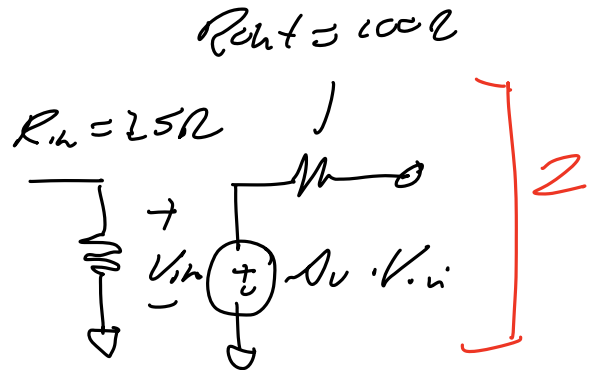 Rout = 100Ω
Rin = 25Ω
2
+
Vin + Av · Vin
−